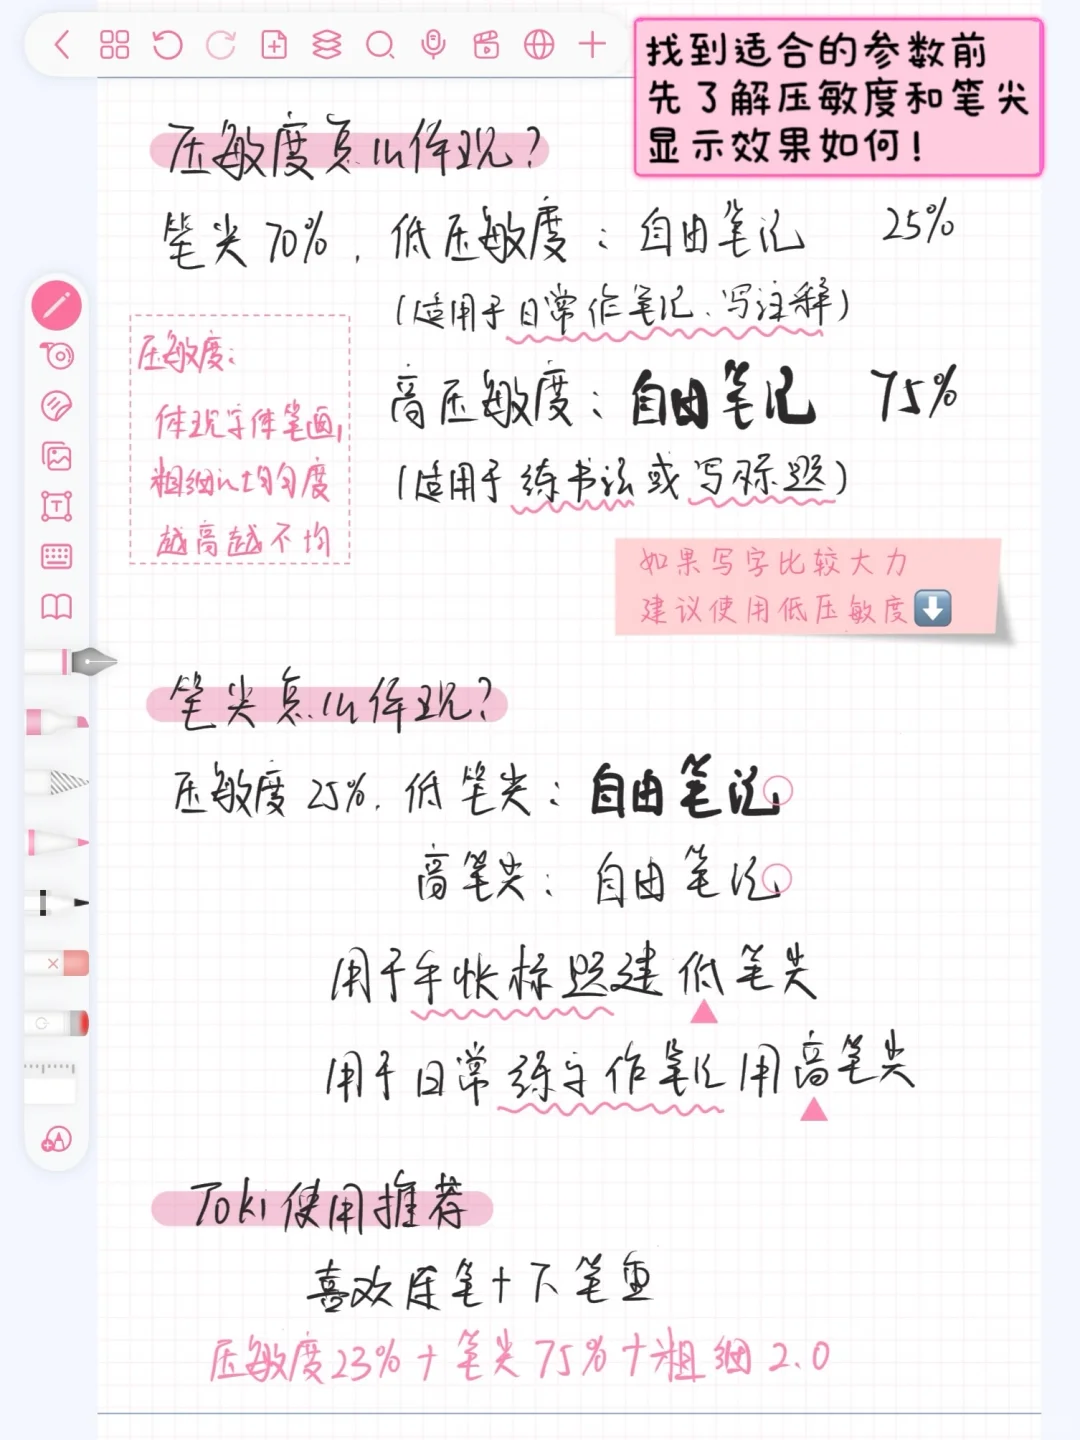 找到适合的参数前
先了解压敏度和笔尖
显示效果如何!
压敏度怎么体现?
笔尖70%，低压敏度：自由笔记 25%
(适用于日常作笔记、写注释)
压敏度：
体现字体笔画，
粗细的均匀度
越高越不均
高压敏度：自由笔记 75%
(适用于练书法或写标题)
如果写字比较大力
建议使用低压敏度⬇️
笔尖怎么体现?
压敏度25%，低笔尖：自由笔记
高笔尖：自由笔记
用于手帐标题建低笔尖
用于日常练字作笔记用高笔尖
Toki使用推荐
喜欢连笔+下笔重
压敏度23%+笔尖75%+粗细2.0